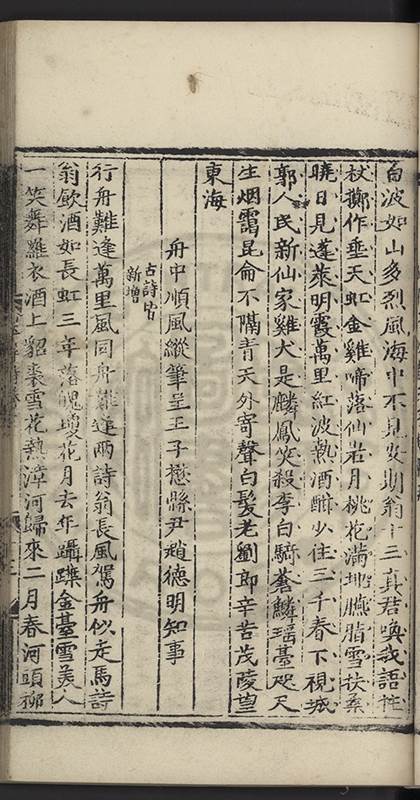 白波如山多烈風海中不見安期翁十三真君喚我語拄
杖擲作垂天虹金雞啼落仙岩月桃花滿地臙脂雪扶桑
曉日見蓬萊明霞萬里紅波熱酒酣少住三千春下視城
郭人民新仙家雞犬是麟鳳笑殺李白騎蒼鱗瑤臺咫尺
生烟靄昆侖不隔青天外寄聲白髮老劉郎辛苦茂陵望
東海
舟中順風縱筆呈王子懋縣尹趙德明知事
古詩皆
新增
行舟難逢萬里風同舟難逢兩詩翁長風駕舟似走馬詩
翁飲酒如長虹三年落魄墁花月去年躡蹀金臺雪美人
一笑舞羅衣酒上貂裘雪花熱漳河歸來二月春河頭柳